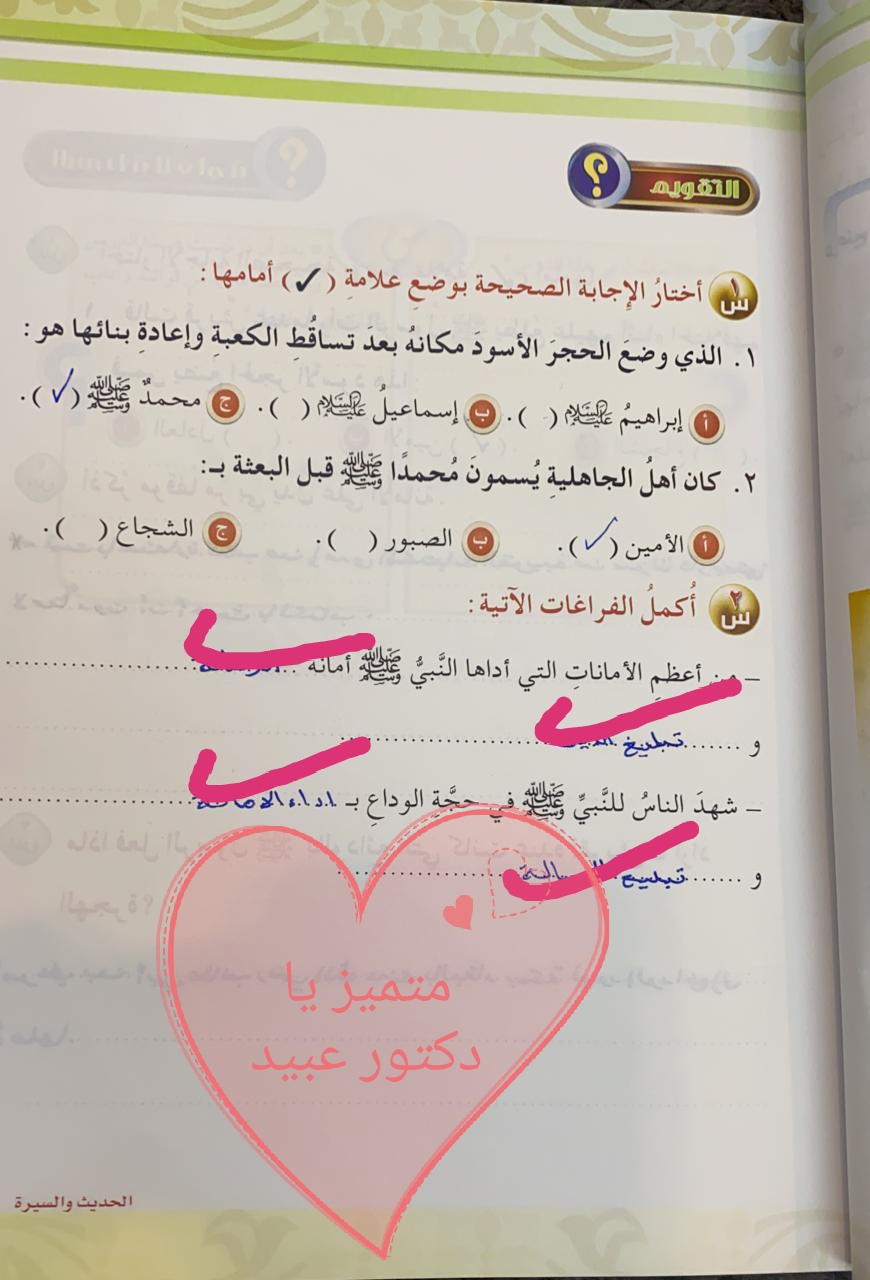 التقويم
س١ أختارُ الإجابة الصحيحة بوضعِ علامةِ (✓) أمامها:
١. الذي وضعَ الحجرَ الأسودَ مكانهُ بعدَ تساقُطِ الكعبةِ وإعادةِ بنائها هو:
أ إبراهيمُ عليه السلام ( ). ب إسماعيلُ عليه السلام ( ). ج محمدٌ ﷺ (✓).
٢. كان أهلُ الجاهليةِ يُسمونَ مُحمدًا ﷺ قبل البعثة بـ:
أ الأمين (✓). ب الصبور ( ). ج الشجاع ( ).
س٢ أُكملُ الفراغات الآتية:
– من أعظمِ الأماناتِ التي أداها النَّبيُّ ﷺ أمانة
و تبليغ
– شهدَ الناسُ للنَّبيِّ ﷺ في حجَّةِ الوداعِ بـ اداء الامانة
و تبليغ الرسالة
متميز يا
دكتور عبيد
الحديث والسيرة